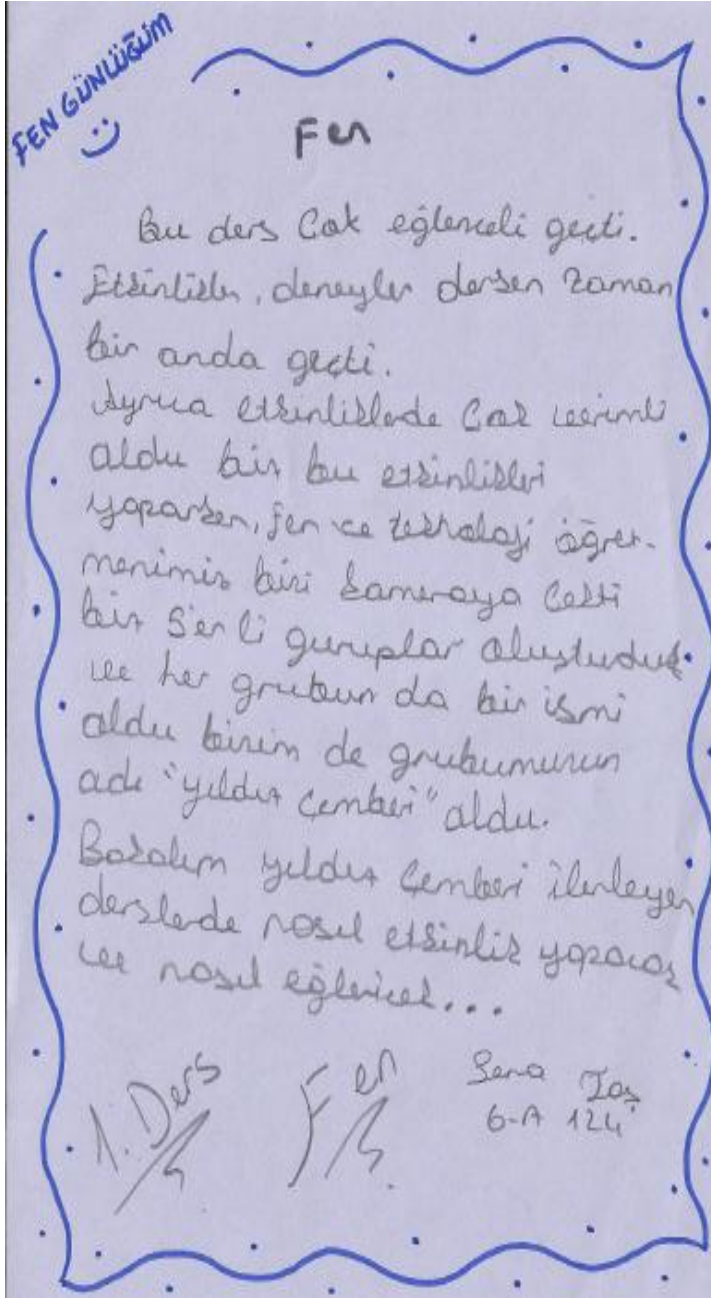 FEN GÜNLÜĞÜM
Fen
Bu ders Çok eğlenceli geçti.
Etkinlikler, deneyler derken zaman
bir anda geçti.
Ayrıca etkinliklerde Çok verimli
oldu biz bu etkinlikleri
yaparken, fen ve teknoloji öğret-
menimiz bizi kameraya Çekti
biz 5'er li guruplar oluşturduk
ve her grubun da bir ismi
oldu bizim de grubumuzun
adı "yıldız Çemberi" oldu.
Bakalım yıldız Çemberi ilerleyen
derslerde nasıl etkinlik yapacak
ve nasıl eğlenicek...
1. Ders
Fen
Sena Taş
6-A 124